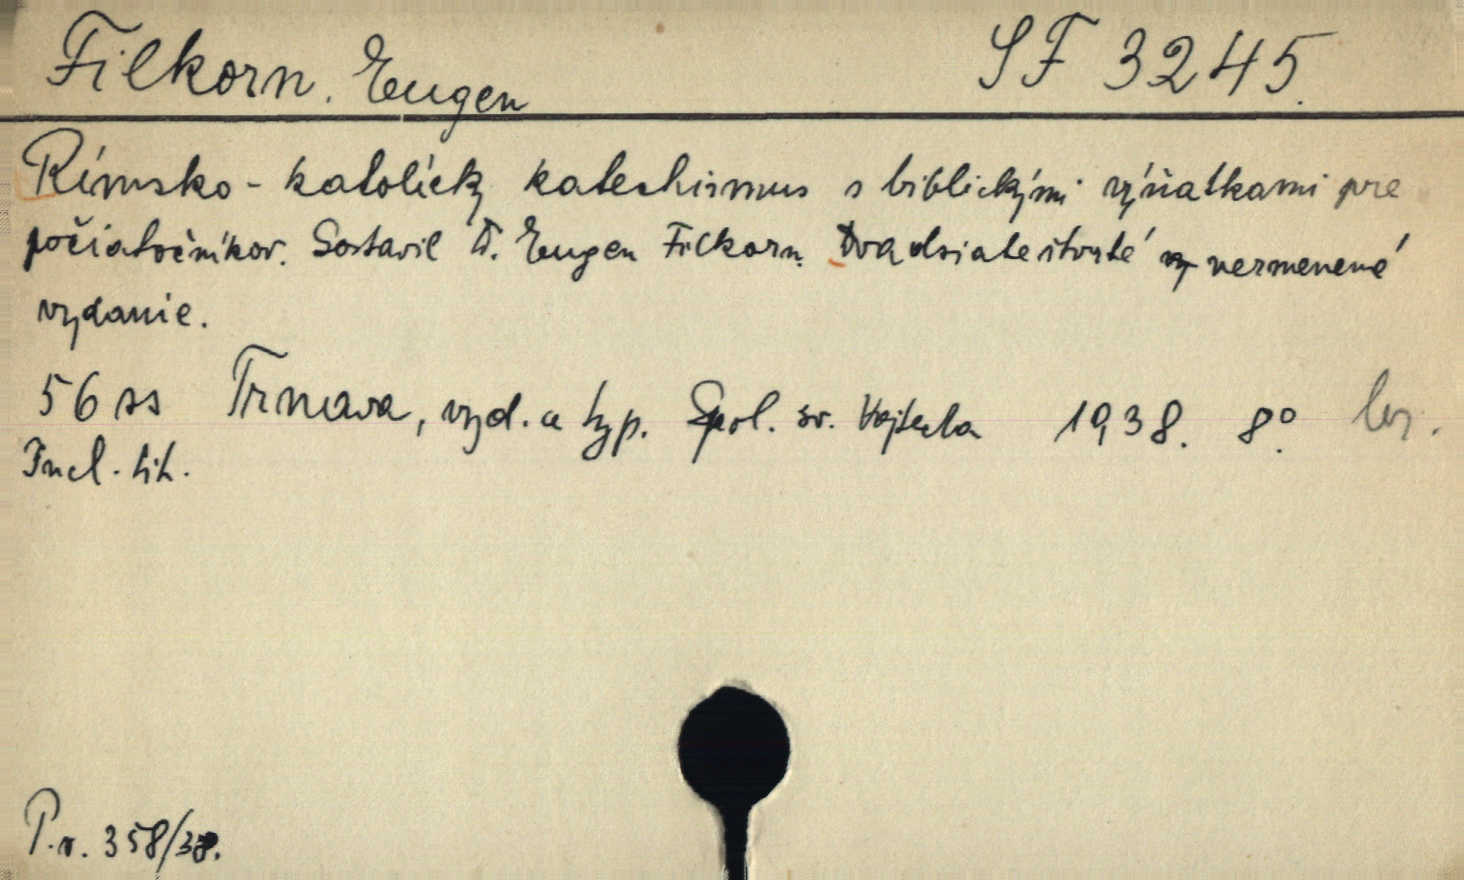 Filkorn. Eugen SF 3245.
Rímsko-katolícky katechismus s biblickými výňatkami pre
počiatočníkov. Sostavil Eugen Filkorn. Dvadsiateštvrté nezmenené
vydanie.
56 ss Trnava, vyd. a typ. Spol. sv. Vojtecha 1938. 8°.
Incl. tit.
P.r. 358/38.